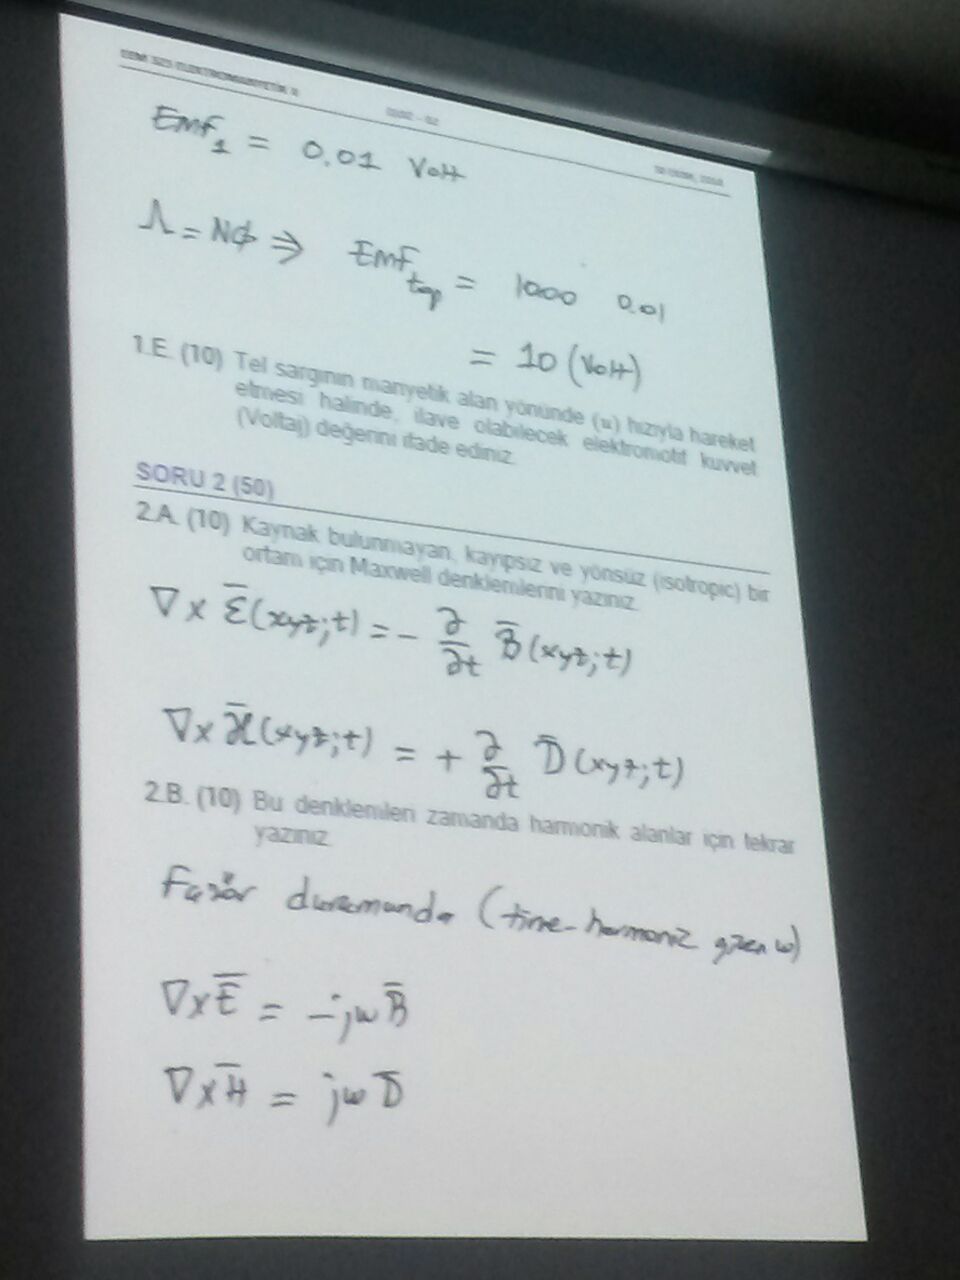 EEM 323 ELEKTROMANYETİK II
QUIZ - 02
Emf₁ = 0.01 Volt
Λ = Nφ ⇒ Emf_top = 1000 0.01
= 10 (Volt)
1.E. (10) Tel sargının manyetik alan yönünde (u) hızıyla hareket
etmesi halinde, ilave olabilecek elektromotif kuvvet
(Voltaj) değerini ifade ediniz.
SORU 2 (50)
2.A. (10) Kaynak bulunmayan, kayıpsız ve yönsüz (isotropic) bir
ortam için Maxwell denklemlerini yazınız.
∇ x ℰ̅(xyz;t) = - ∂/∂t B̅(xyz;t)
∇ x ℋ̅(xyz;t) = + ∂/∂t D̅(xyz;t)
2.B. (10) Bu denklemleri zamanda harmonik alanlar için tekrar
yazınız.
Fazör durumunda (time-harmonic w)
∇xE̅ = -jwB̅
∇xH̅ = jwD̅